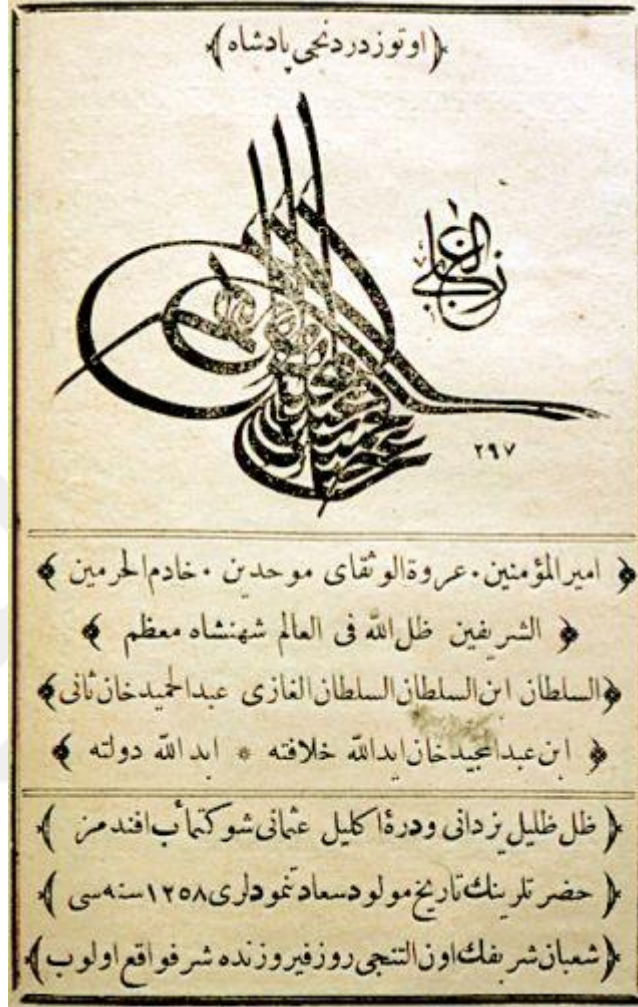 ﴿ اوتوز دردنجی پادشاه ﴾
الغازی
٢٩٧
﴿ امیر المؤمنین ٠ عروة الوثقای موحدین ٠ خادم الحرمین ﴾
﴿ الشریفین ظل الله فی العالم شهنشاه معظم ﴾
﴿ السلطان ابن السلطان السلطان الغازی عبدالحمید خان ثانی ﴾
﴿ ابن عبدالمجید خان اید الله خلافته * ابد الله دولته ﴾
﴿ ظل ظلیل یزدانی ودرۀ اکلیل عثمانی شوکتمأب افندمز ﴾
﴿ حضرتلرینك تاریخ مولود سعادتنمودلری ١٢٥٨ سنه سی ﴾
﴿ شعبان شریفك اون التنجی روز فیروزنده شرفواقع اولوب ﴾